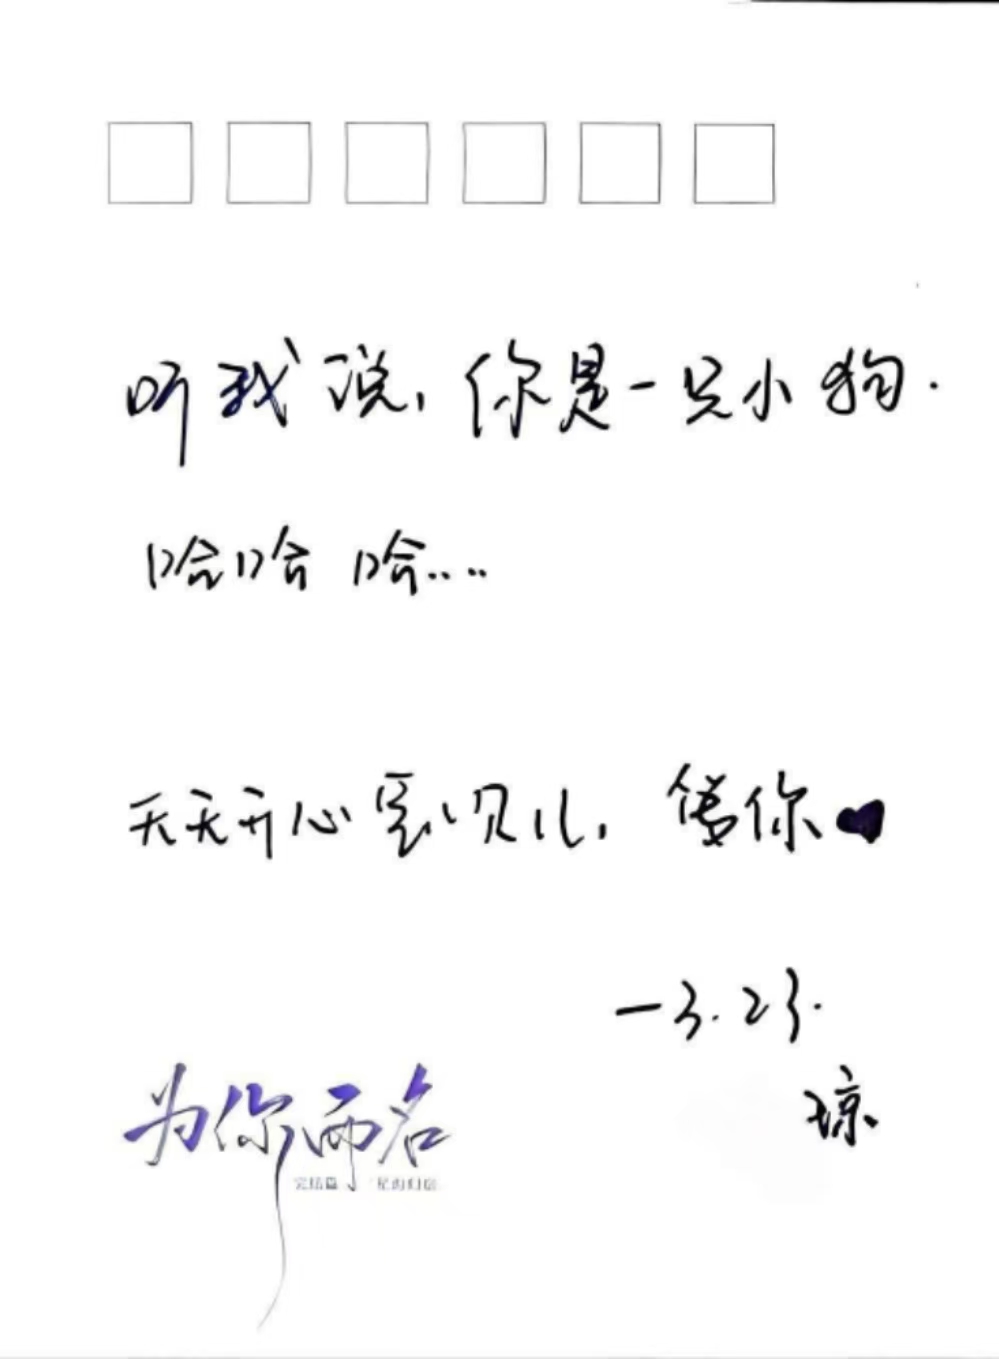 听我说，你是一只小狗.
哈哈 哈....
天天开心宝贝儿，等你
—3.23.
琼
为你而名
完结篇